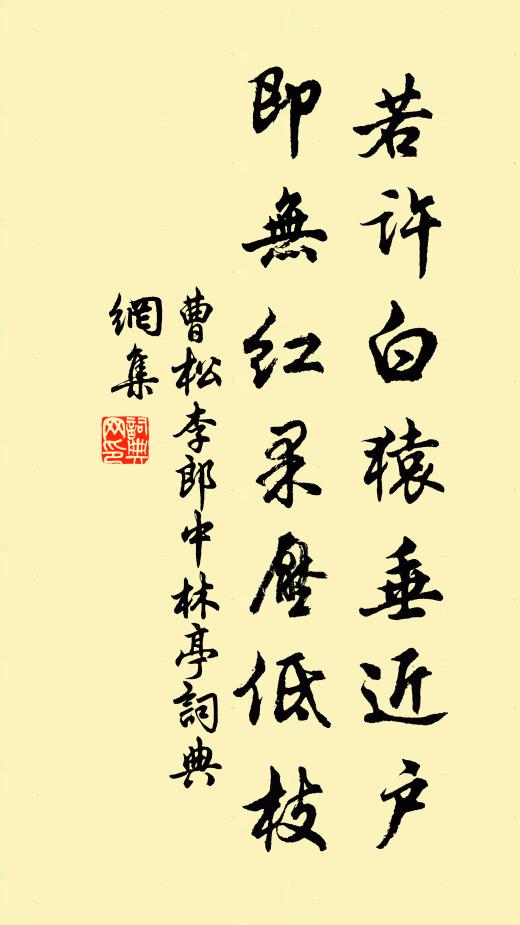 若許白猿垂近戶
即無紅果壓低枝
曹松李郎中林亭詞典
網集
詞典
网印